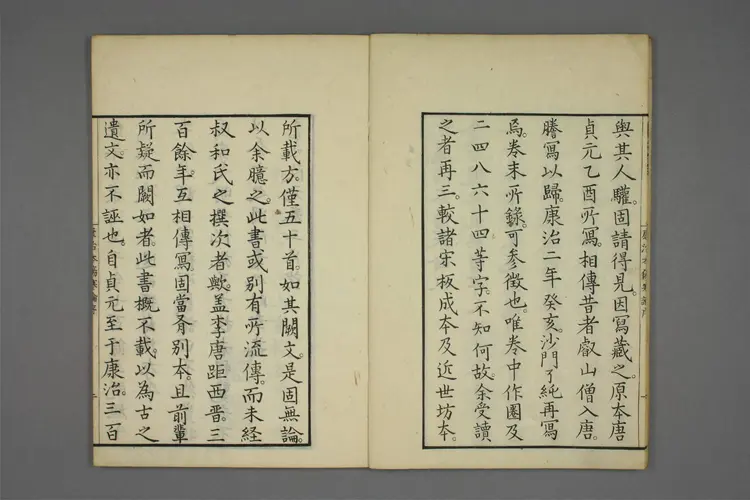 與其人驩。固請得見。因寫藏之。原本唐
貞元乙酉所寫。相傳昔者叡山僧入唐。
謄寫以歸。康治二年癸亥。沙門了純再寫
焉。卷末所錄。可參徵也。唯卷中作圈及
二四八六十四等字。不知何故。余受讀
之者再三。較諸宋板成本及近世坊本。
所載方。僅五十首。如其闕文。是固無論。
以余臆之。此書或別有所流傳。而未經
叔和氏之撰次者歟。蓋李唐距西晉。三
百餘年。互相傳寫。固當有別本。且前輩
所疑而闕如者。此書概不載。以為古之
遺文。亦不誣也。自貞元至于康治。三百